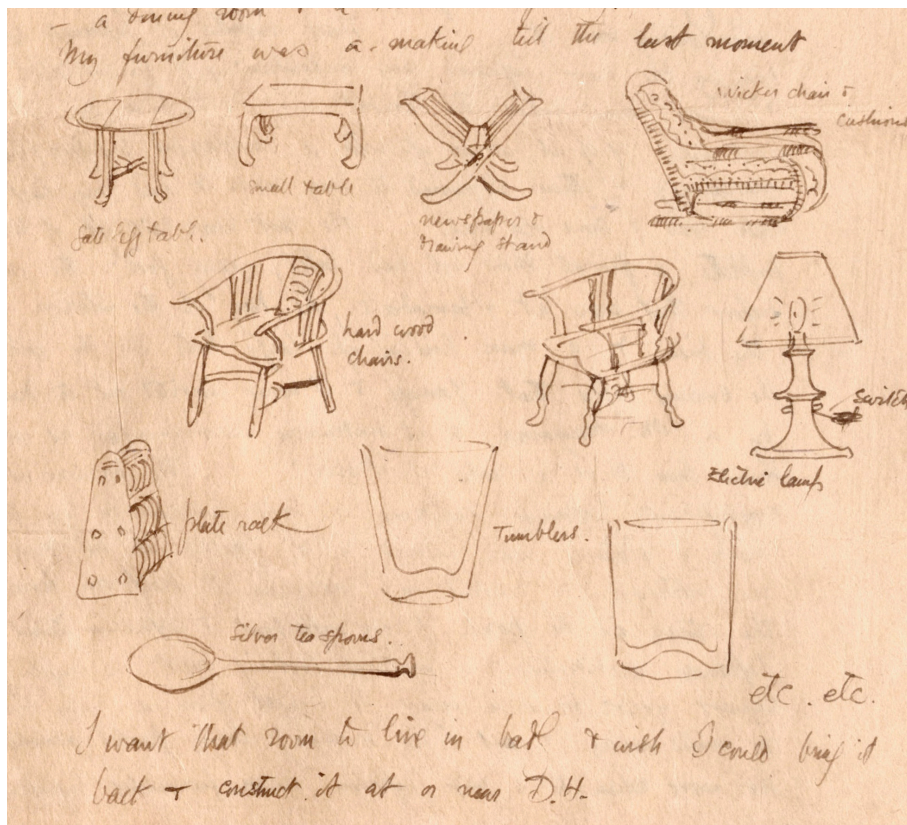 – a dining room &
My furniture was a-making till the last moment
wicker chair &
cushions
small table
gate leg table.
newspaper &
drawing stand
hard wood
chairs.
switch
Electric lamp
plate rack
Tumblers.
Silver tea spoons.
etc. etc.
I want that room to live in & wish I could bring it
back & construct it at or near D.H.